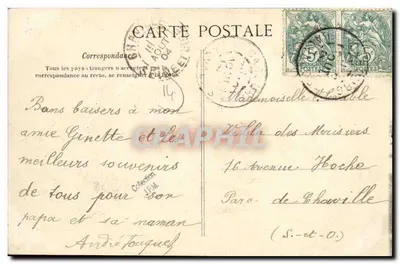 CARTE POSTALE
Correspondance
Tous les pays étrangers n'acceptent
correspondance au recto, se renseigner
14
Bons baisers à mon
amie Ginette et les
meilleurs souvenirs
de tous pour son
papa et sa maman
André Fouquet
Collection
Mademoiselle
Villa des Merisiers
16 Avenue Hoche
Parc de Chaville
(S.-et-O.)
5
5